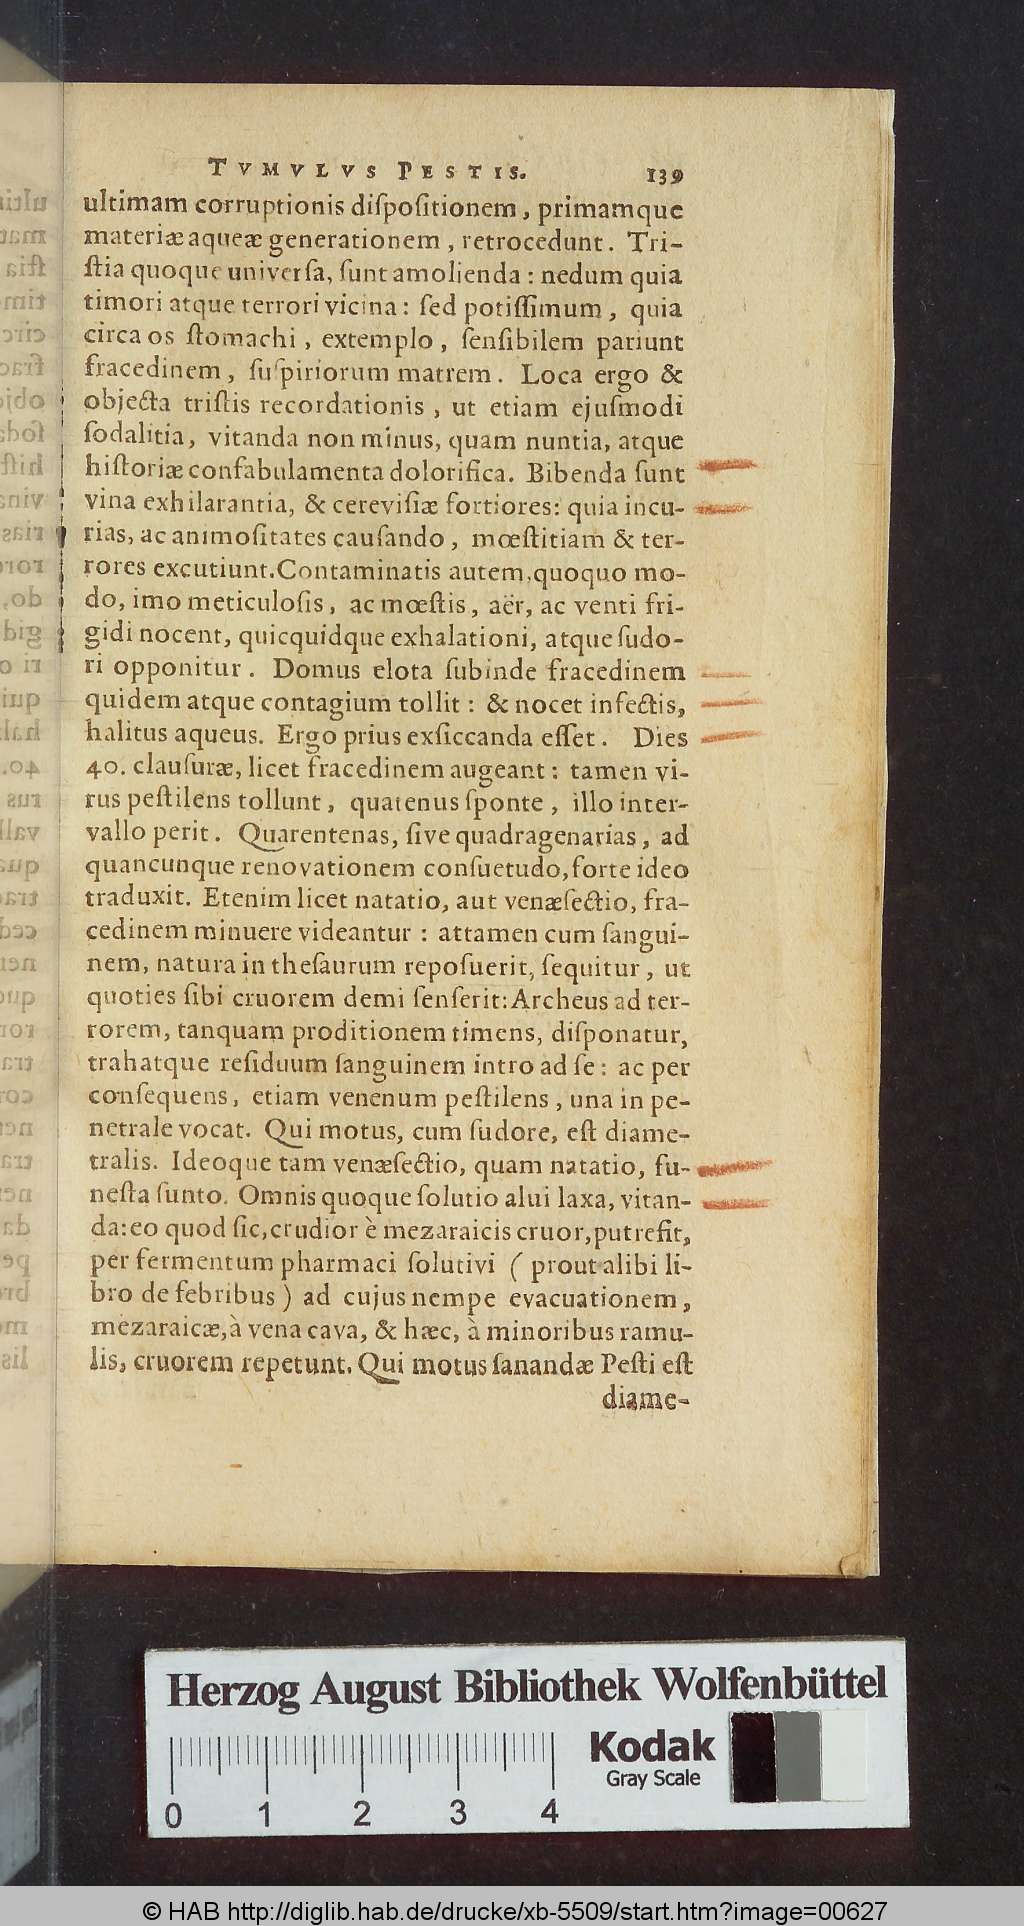 TVMVLVS PESTIS. 139
ultimam corruptionis diſpoſitionem, primamque
materiæ aqueæ generationem, retrocedunt. Tri-
ſtia quoque univerſa, ſunt amolienda: nedum quia
timori atque terrori vicina: ſed potiſſimum, quia
circa os ſtomachi, extemplo, ſenſibilem pariunt
fracedinem, ſuſpiriorum matrem. Loca ergo &
objecta triſtis recordationis, ut etiam ejuſmodi
ſodalitia, vitanda non minus, quam nuntia, atque
hiſtoriæ confabulamenta dolorifica. Bibenda ſunt
vina exhilarantia, & cereviſiæ fortiores: quia incu-
rias, ac animoſitates cauſando, mœſtitiam & ter-
rores excutiunt. Contaminatis autem, quoquo mo-
do, imo meticuloſis, ac mœſtis, aër, ac venti fri-
gidi nocent, quicquidque exhalationi, atque ſudo-
ri opponitur. Domus elota ſubinde fracedinem
quidem atque contagium tollit: & nocet infectis,
halitus aqueus. Ergo prius exſiccanda eſſet. Dies
40. clauſuræ, licet fracedinem augeant: tamen vi-
rus peſtilens tollunt, quatenus ſponte, illo inter-
vallo perit. Quarentenas, ſive quadragenarias, ad
quancunque renovationem conſuetudo, forte ideo
traduxit. Etenim licet natatio, aut venæſectio, fra-
cedinem minuere videantur: attamen cum ſangui-
nem, natura in theſaurum repoſuerit, ſequitur, ut
quoties ſibi cruorem demi ſenſerit: Archeus ad ter-
rorem, tanquam proditionem timens, diſponatur,
trahatque reſiduum ſanguinem intro ad ſe: ac per
conſequens, etiam venenum peſtilens, una in pe-
netrale vocat. Qui motus, cum ſudore, eſt diame-
tralis. Ideoque tam venæſectio, quam natatio, fu-
neſta ſunto. Omnis quoque ſolutio alui laxa, vitan-
da: eo quod ſic, crudior è mezaraicis cruor, putrefit,
per fermentum pharmaci ſolutivi (prout alibi li-
bro de febribus) ad cujus nempe evacuationem,
mezaraicæ, à vena cava, & hæc, à minoribus ramu-
lis, cruorem repetunt. Qui motus ſanandæ Peſti eſt
diame-
Herzog August Bibliothek Wolfenbüttel
Kodak
Gray Scale
0 1 2 3 4
© HAB http://diglib.hab.de/drucke/xb-5509/start.htm?image=00627